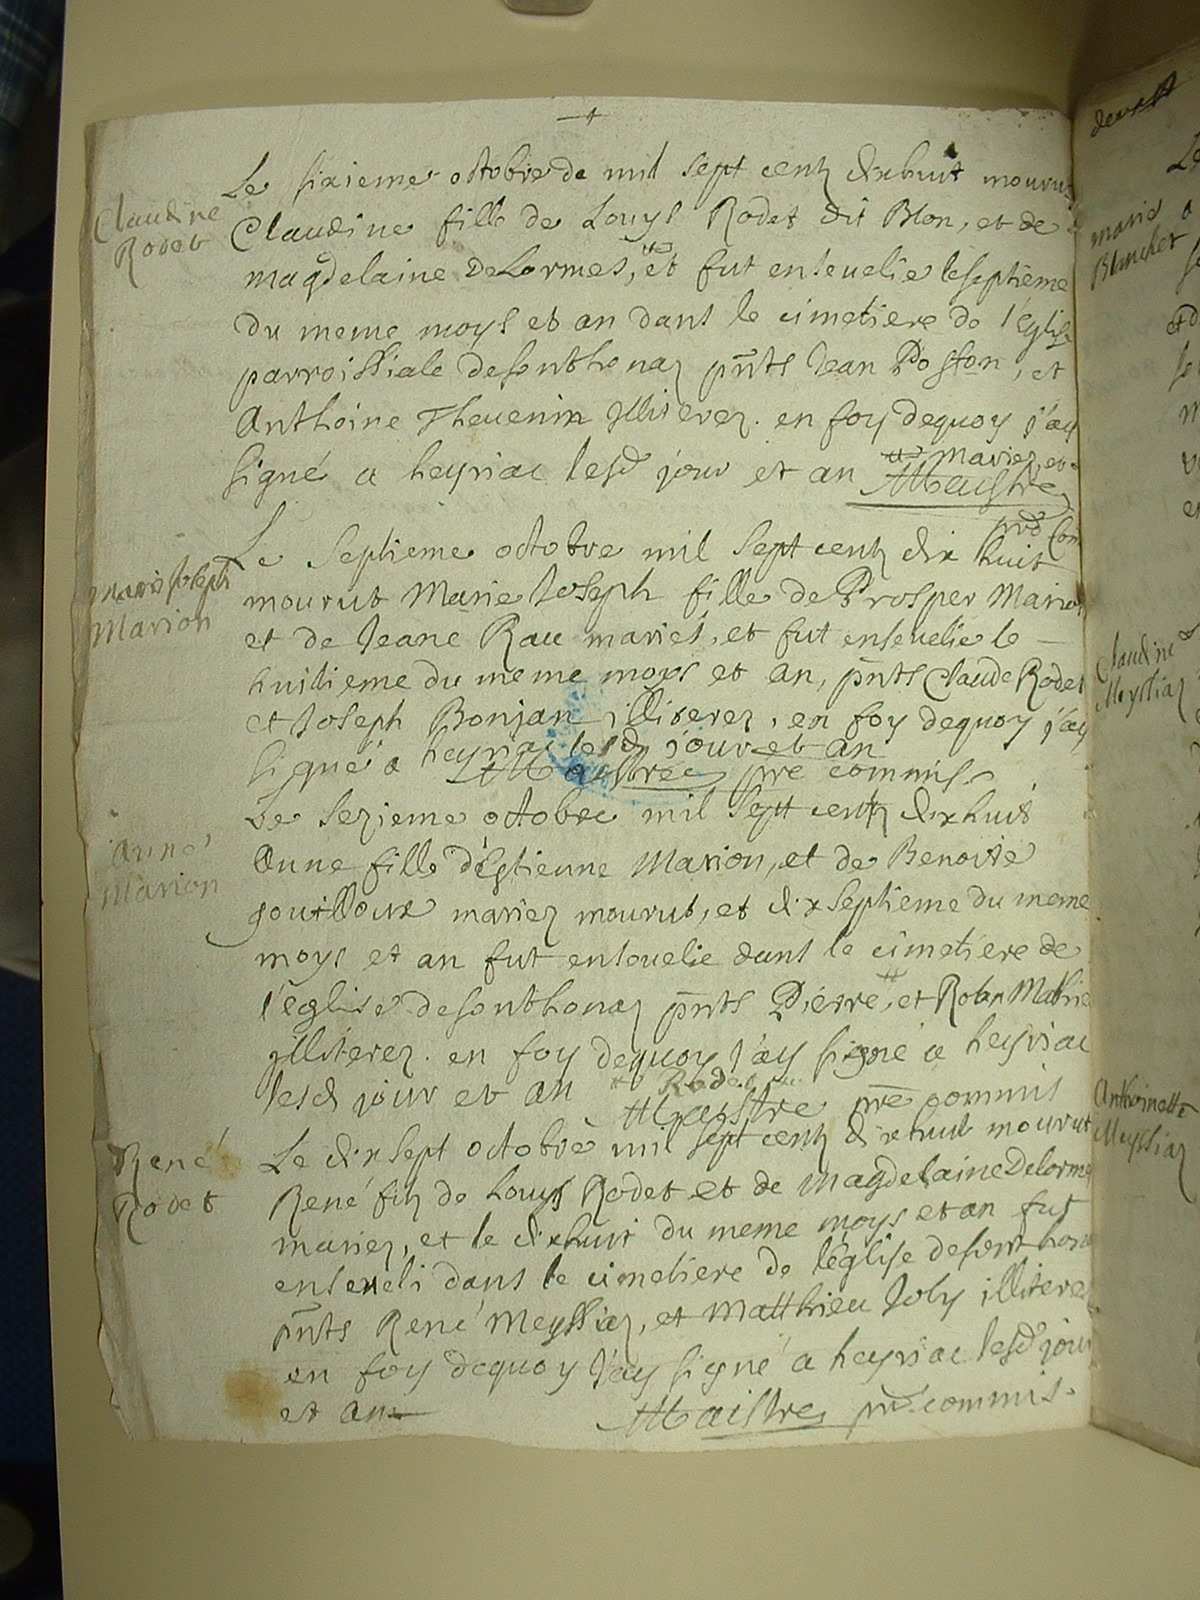 Le sixieme octobre de mil sept centz dixhuit mourut
Claudine
Rodet
Claudine fille de Louys Rodet dit Blon, et de
magdelaine deLormes, et fut ensevelie le septieme
du meme moys et an dans le cimetiere de l'eglise
parroissiale desonthonaz pnts Jean Poston, et
Anthoine Thevenin jlliterez. en foy dequoy j'ay
signé a heyriac lesd jour et an mariez, et
Maistre
prd Com
Le septieme octobre mil sept centz dix huit
marie joseph
Marion
mourut Marie Joseph fille de Prosper Marion
et de Jeane Rau mariés, et fut ensevelie le
huitieme du meme moys et an, pnts Claude Rodet
et Joseph Bonjan illiterez, en foy dequoy j'ay
signé a heyriac lesd jour et an
Maistre pre commis
Le sezieme octobre mil sept centz dixhuit
Anne
Marion
Anne fille d'Estienne Marion, et de Benoite
gouilloux mariez mourut, et dixseptieme du meme
moys et an fut ensevelie dans le cimetiere de
l'eglise desonthonaz pnts Pierre, et Roban Mathie
jlliterez. en foy dequoy j'ay signé a heyriac
lesd jour et an Rodet
Maistre pre commis
René
Rodet
Le dixsept octobre mil sept centz dixhuit mourut
René filz de Louys Rodet et de Magdelaine Delorme
mariez, et le dixhuit du meme moys et an fut
enseveli dans le cimetiere de l'eglise desonthona
pnts René Meyssiaz, et Matthieu Joly illiterez
en foy dequoy j'ay signé a heyriac lesd jour
et an
Maistre pre commis
marie
Blanchet
Claudine
Meyssiaz
Anthoinette
Meyssiaz